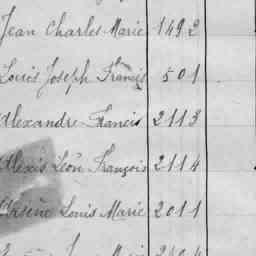 Jean Charles Marie 1492
Louis Joseph Francis 501
Alexandre Francis 2113
Alexis Léon François 2114
Arsène Louis Marie 2011